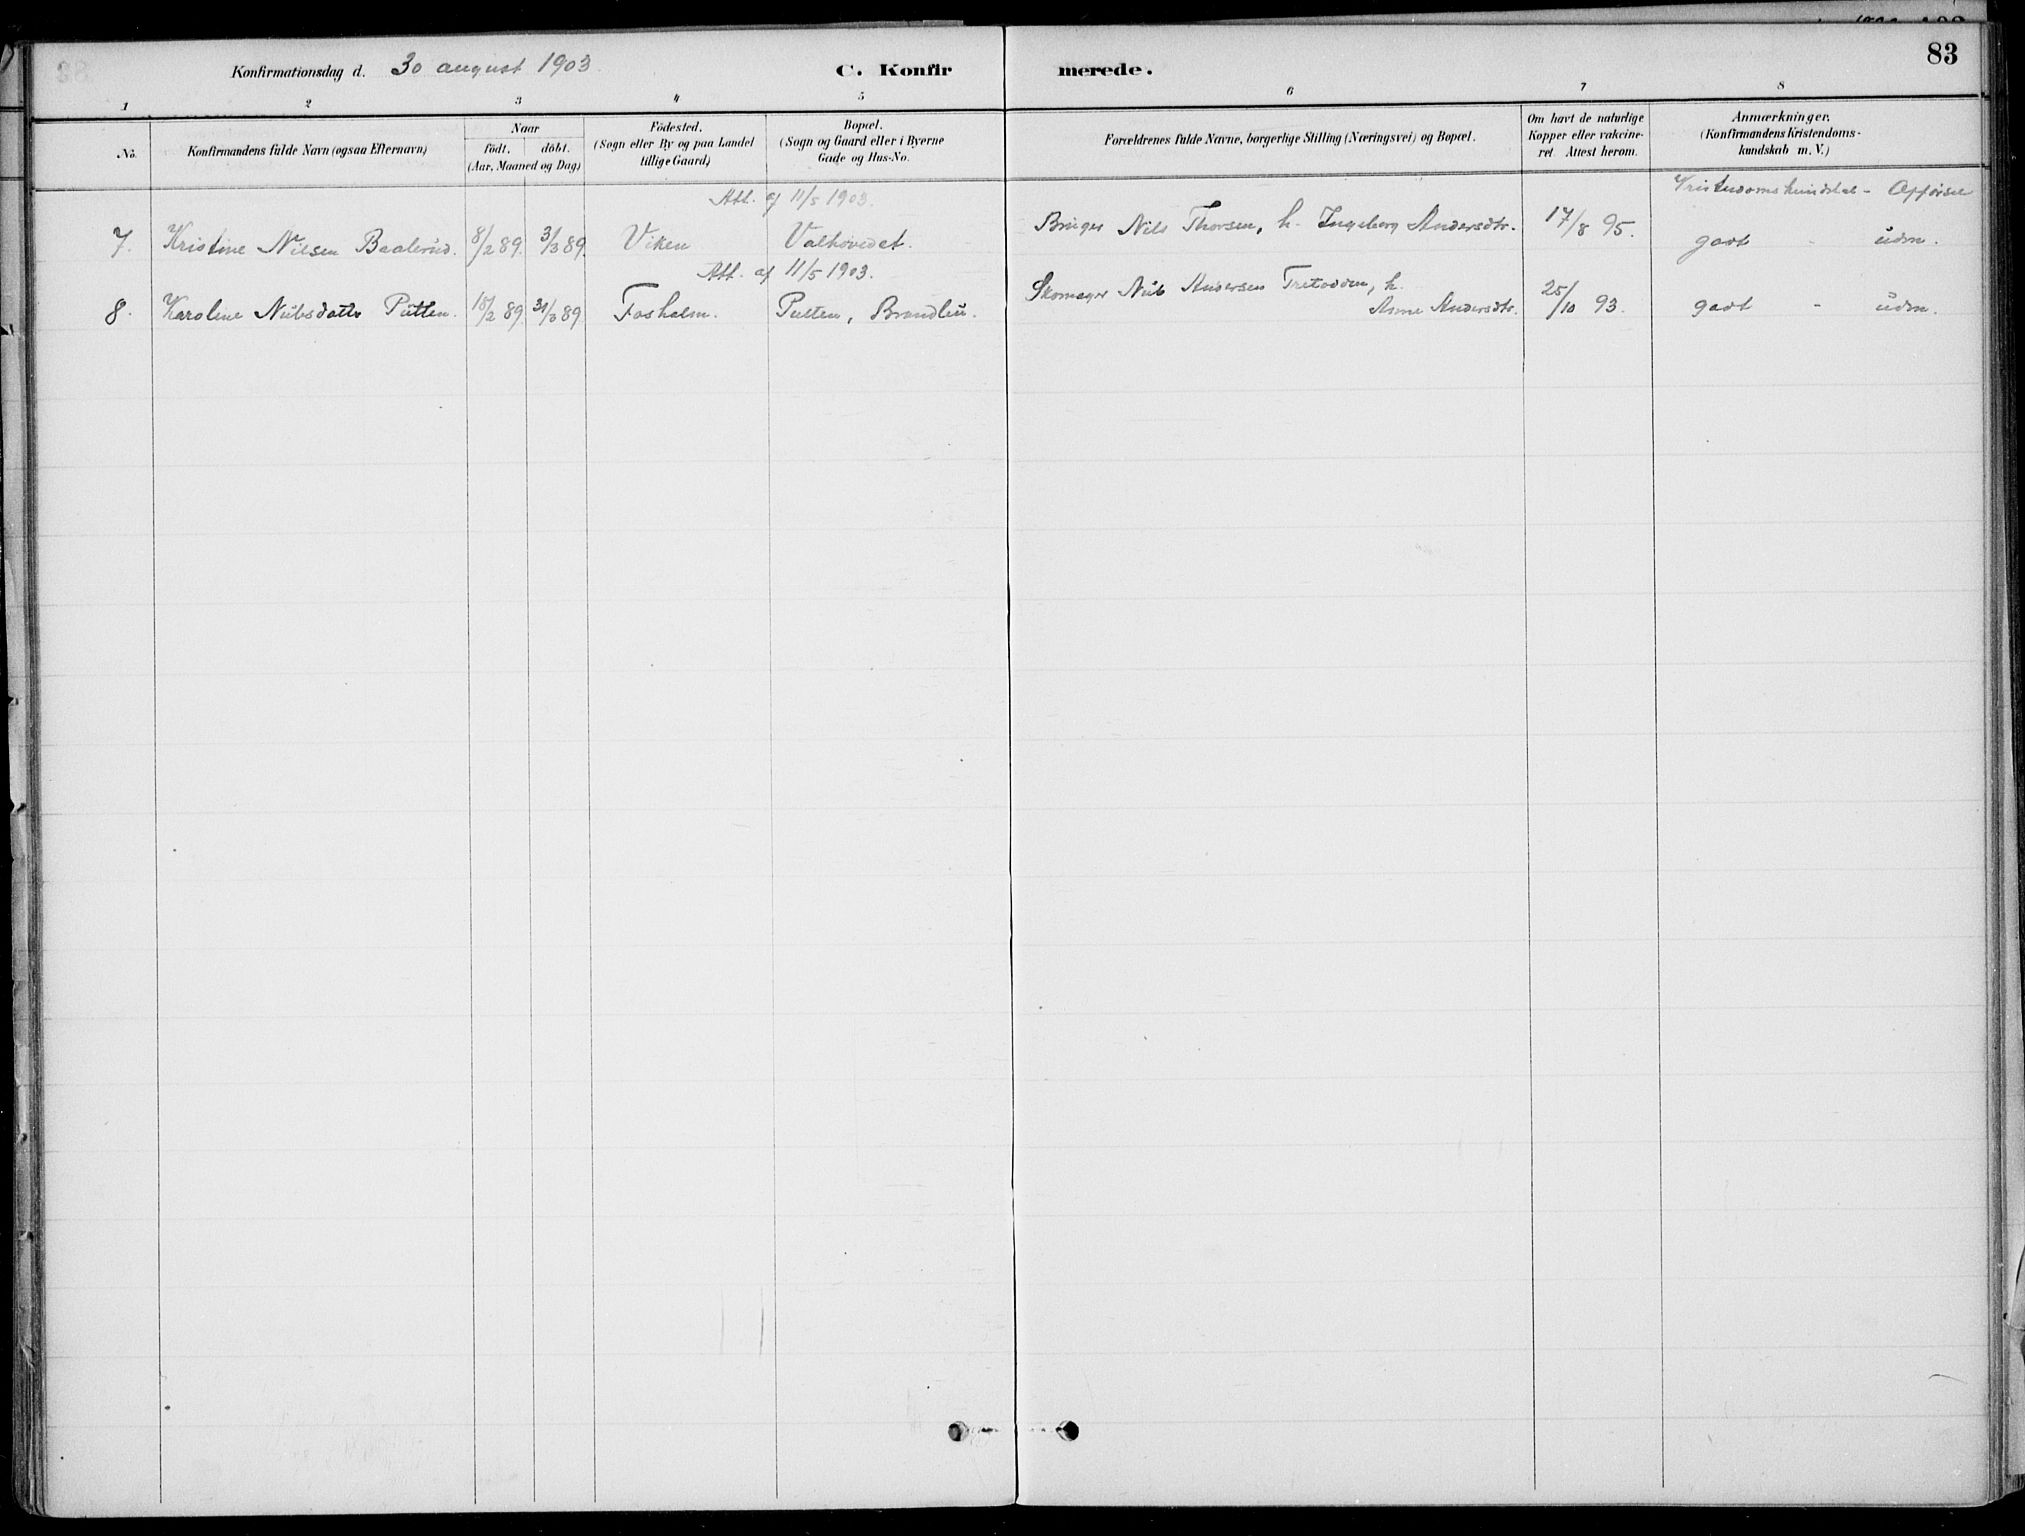 83
Konfirmationsdag d. 30 august 1903.
C. Konfirmerede.
1 2 3 4 5 6 7 8
No.
Konfirmandens fulde Navn (ogsaa Efternavn)
Naar
födt. döbt.
(Aar, Maaned og Dag)
Födested.
(Sogn eller By og paa Landet
tillige Gaard)
Bopæl.
(Sogn og Gaard eller i Byerne
Gade og Hus-No.
Forældrenes fulde Navne, borgerlige Stilling (Næringsvei) og Bopæl.
Om havt de naturlige
Kopper eller vakcine-
ret. Attest herom.
Anmærkninger.
(Konfirmandens Kristendoms-
kundskab m. V.)
Att. af 11/5 1903.
Kristendomskundskab - Opförsel
7. Kristine Nilsen Baalerud. 8/2 89. 31/3 89. Viken Valhovedet. Bruger Nils Thorsen, h. Ingeborg Andersdtr. 17/8 95. godt - udm.
Att. af 11/5 1903.
8. Karoline Nubsdatter Putten. 18/2 89. 31/3 89 Fosholm. Putten, Brandlia. Skomager Nub Andersen Tretodden, h.
Anne Andersdtr. 25/10 93. godt - udm.